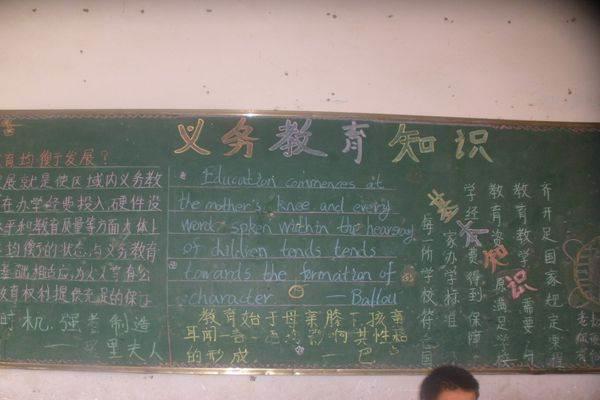 义务教育知识
育均衡发展？
展就是使区域内义务教
在办学经费投入、硬件设
水平和教育质量等方面大体上
均衡的状态，与义务教育
相适应，为人人享有公
教育权利提供充足的保
时机，强者制造
里夫人
Education commences at
the mother's knee and every
word spken within the hearsay
of children tends tends
towards the formation of
character. — Ballou
教育始于母亲膝下，孩童
耳闻一言一语影响其性格
的形成 — 巴
基本知识
齐开足国家规定课程
教育教学需要
教育资源满足学校
学经费得到保障
家办学标准
每一所学校符合国